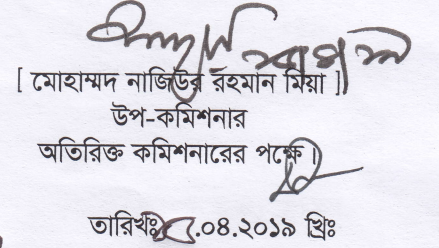 [ মোহাম্মদ নাজিউর রহমান মিয়া ]
উপ-কমিশনার
অতিরিক্ত কমিশনারের পক্ষে।
তারিখঃ .০৪.২০১৯ খ্রিঃ